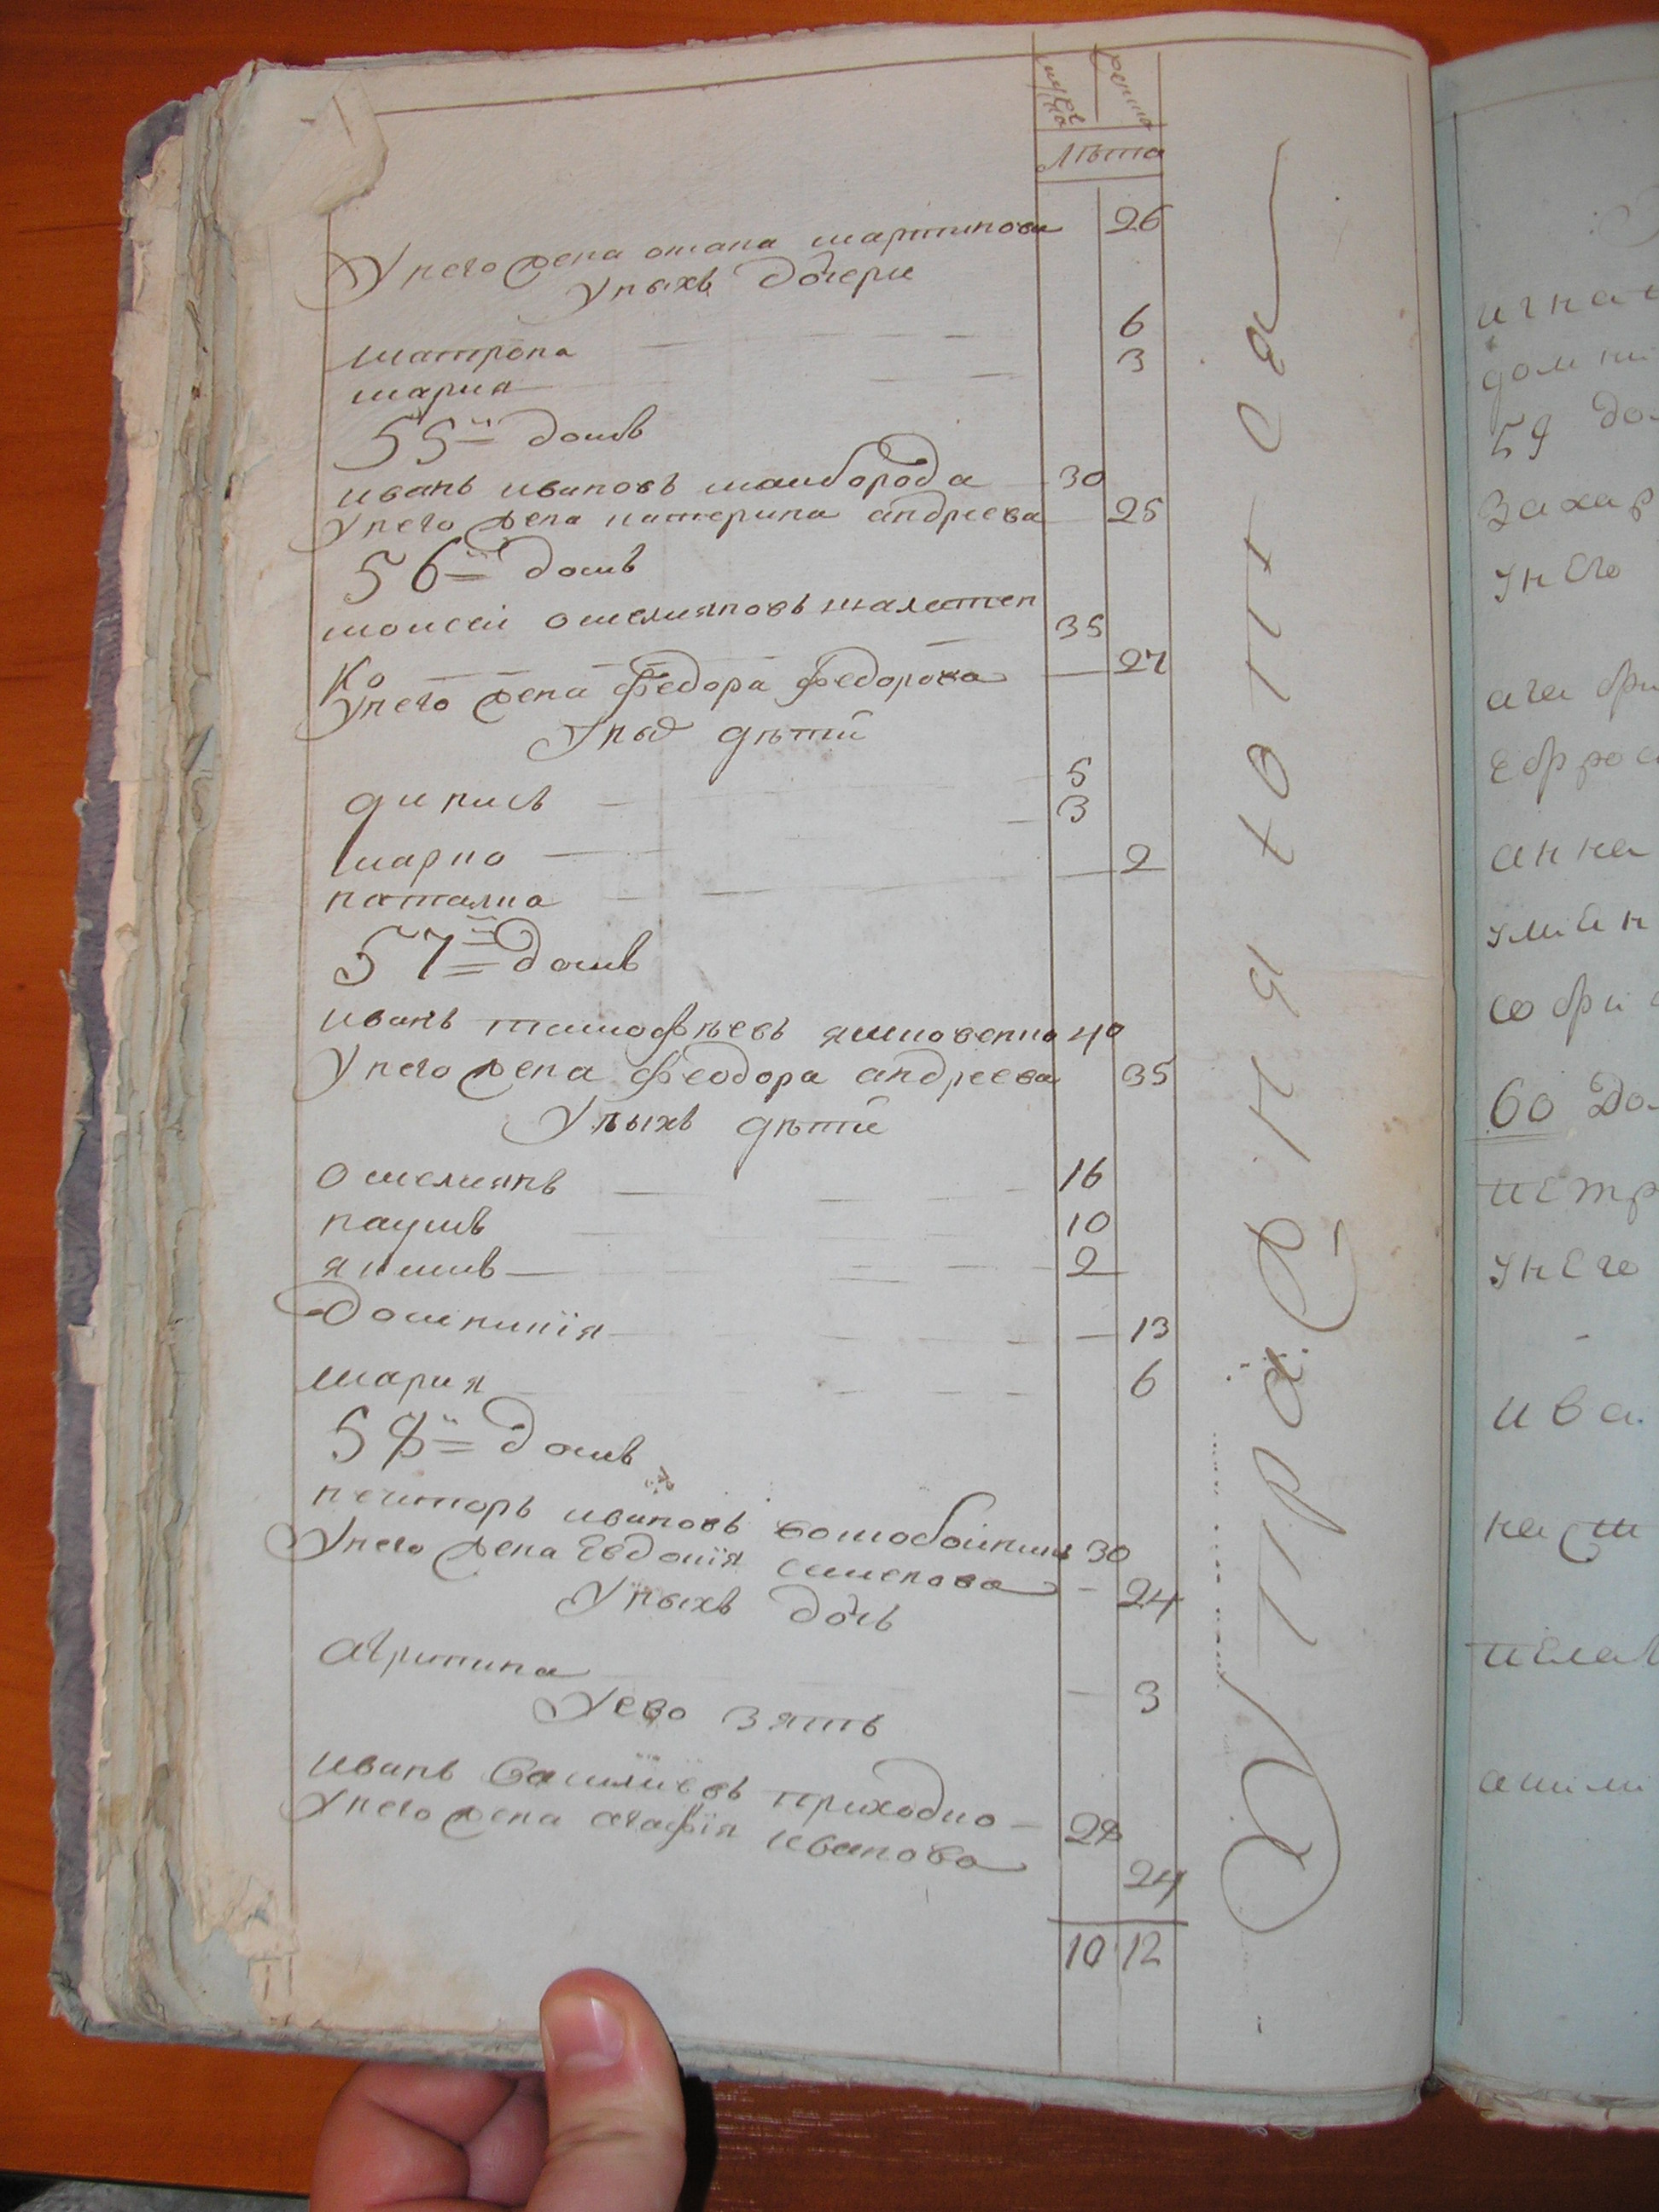 мужеска
женска
Лѣта
У него жена омана мартинова 26
У ныхъ дочери
матрона 6
мария 3
55й домъ
иванъ ивановъ маиборода 30
У него жена катерина андреева 25
56й домъ
моисеі омеляновъ шалетен 35
ко
У него жена федора федорова 27
У ных дѣти
динисъ 5
марко 3
наталка 2
57й домъ
иванъ тимофѣевъ якиовенко 40
У него жена феодора андреева 35
У ныхъ дѣти
Омелиянъ 16
наумъ 10
якимъ 2
Домникия 13
мария 6
58й домъ
нечипоръ ивановъ 30
У него жена Евдокїя симонова 24
У ныхъ дочь
Агрипина 3
У ево зять
иванъ василиевъ приходко 28
У него жена агафїя иванова 24
10 12
игна
домни
59 до
захар
у него
ага фи
ефрос
анна
софи
60 До
петр
у него
ива
наст
пелаг